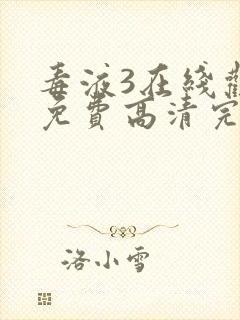 毒液3在线
免费高清完
洛小雪